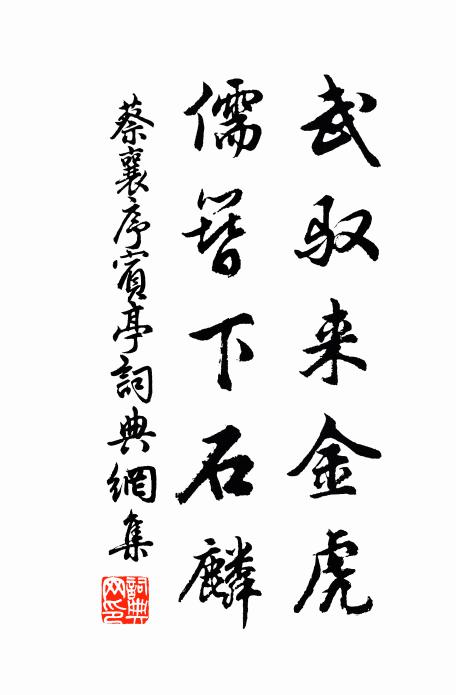 武驭来金虎
儒簪下石麟
蔡襄序賓亭詞典網集
詞典